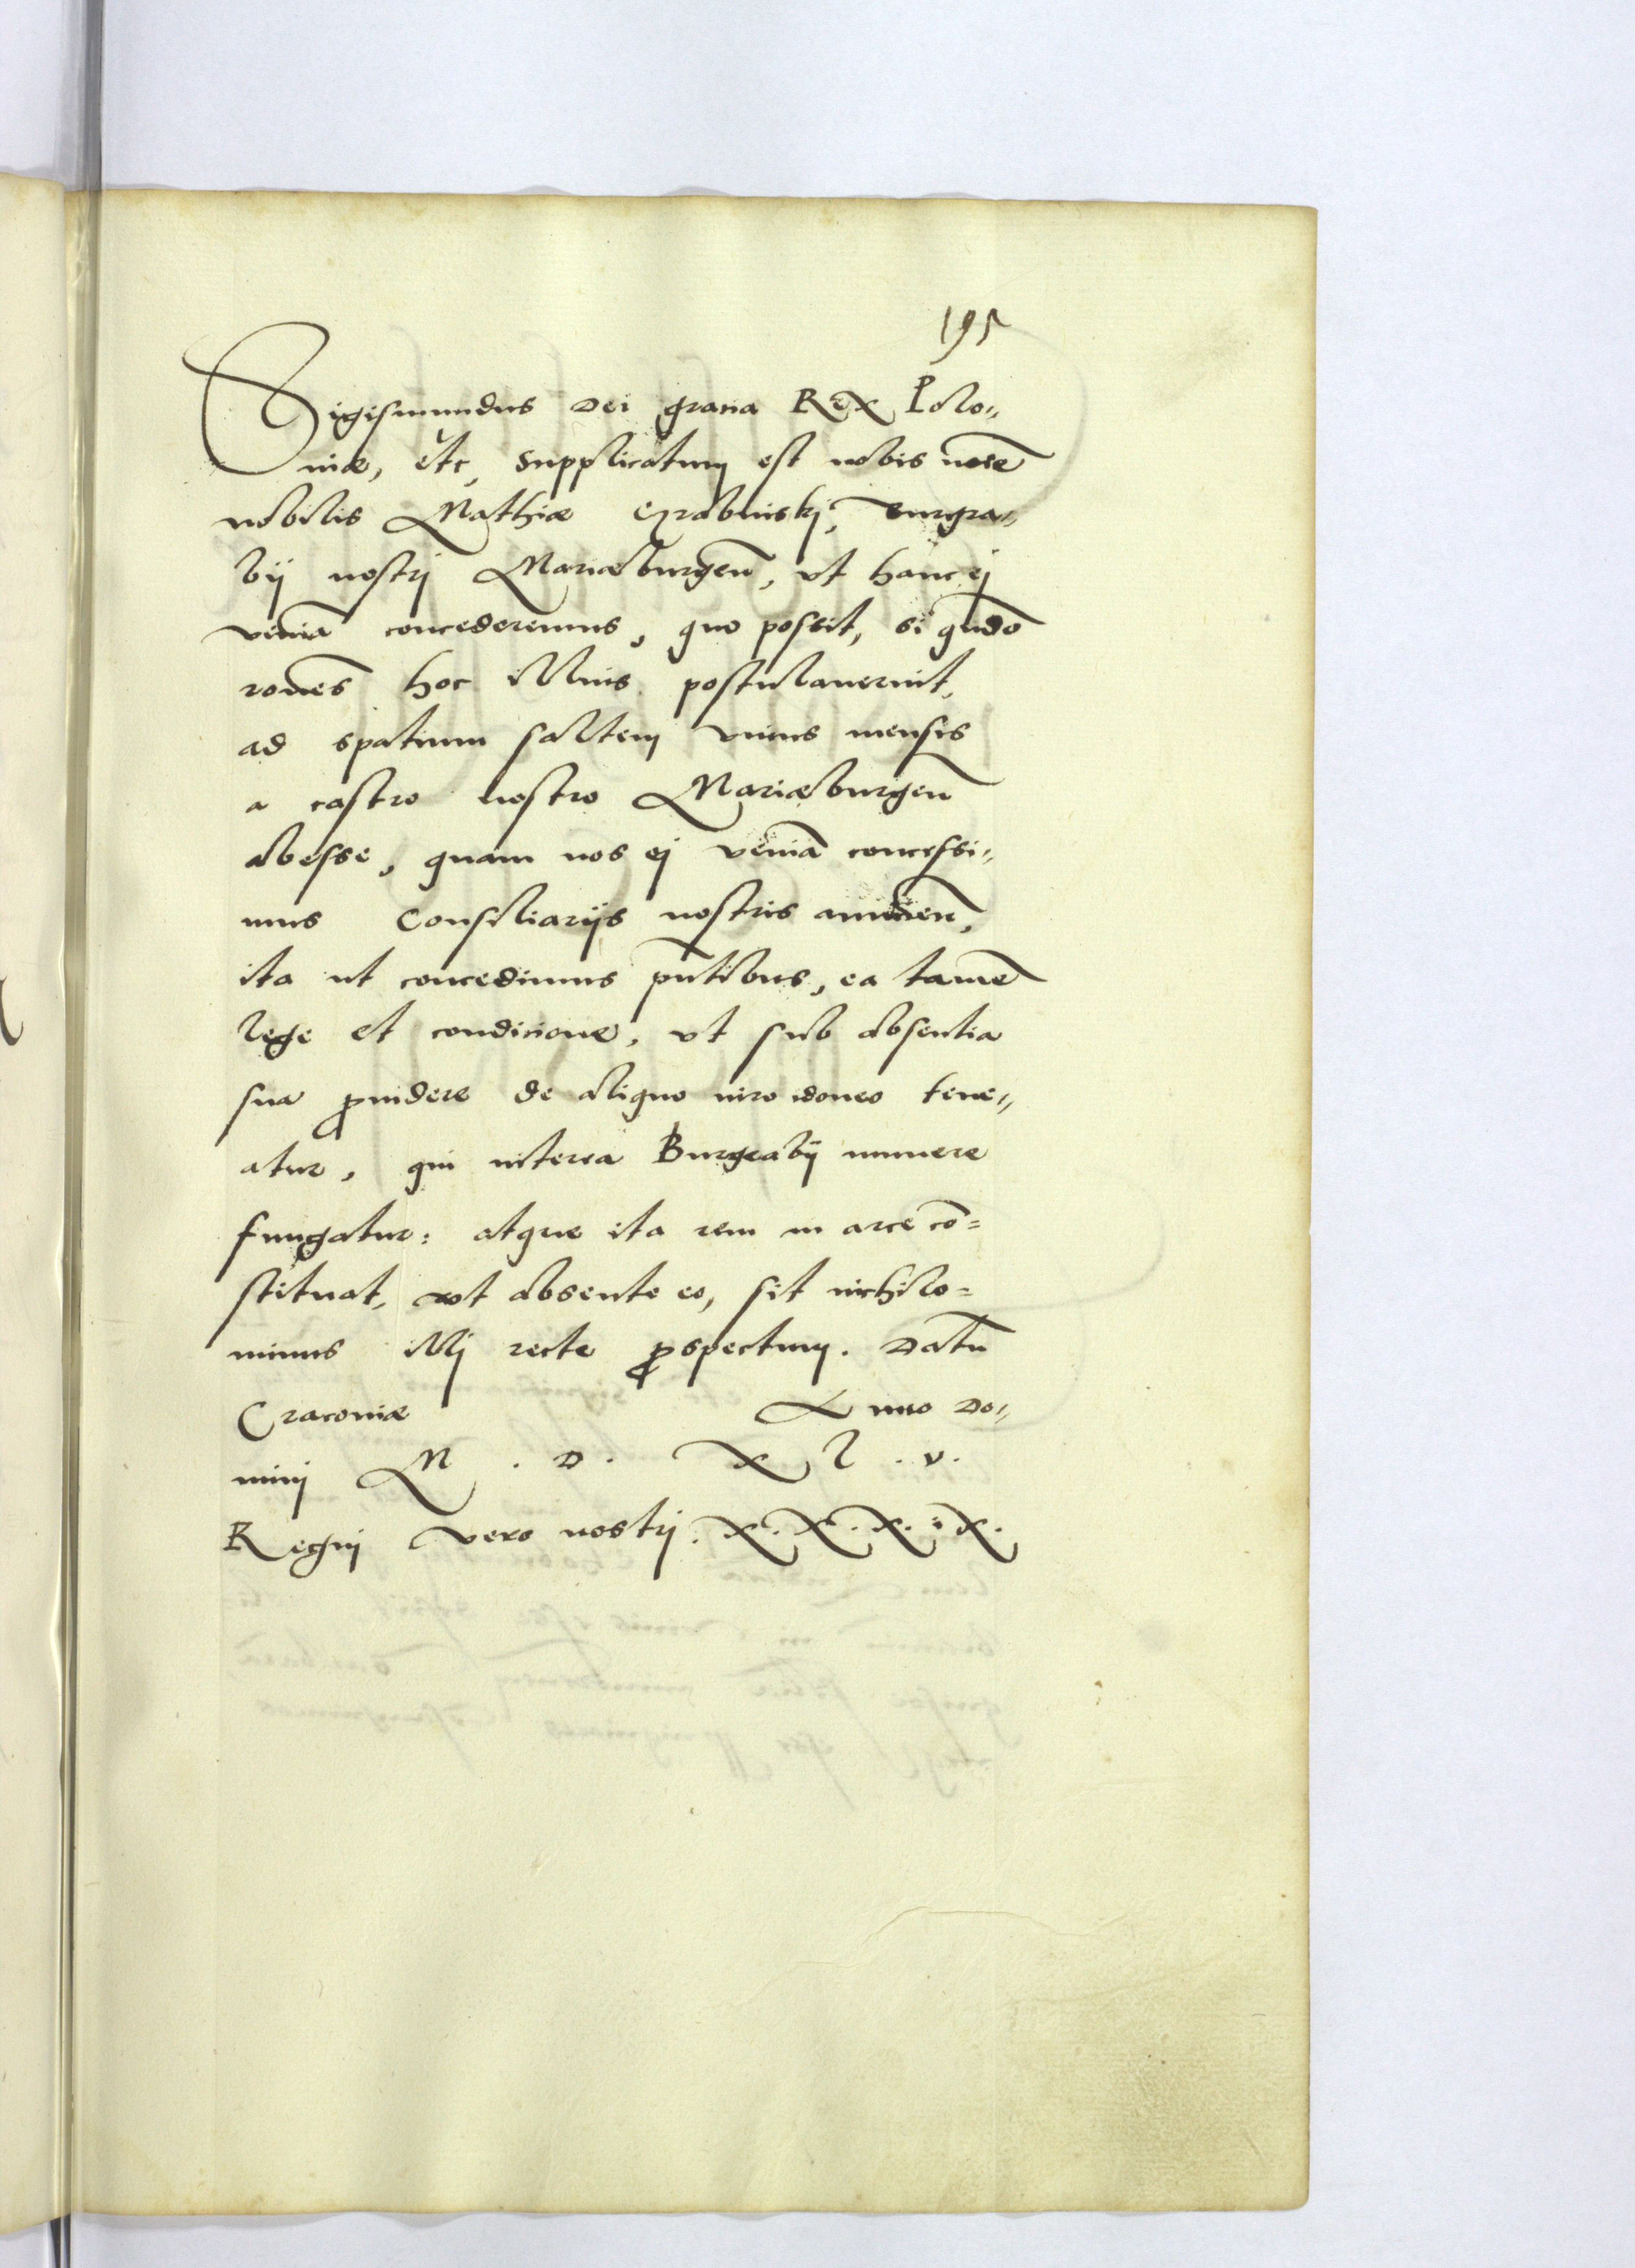 195
Sigismundus Dei gratia Rex Polo„
niæ, etc, Supplicatum est nobis noīe
nobilis Mathiæ Grabinskj, Burgra„
bij nostrj Mariæburgeñ, vt hanc ej
veniā concederemus, quo possit, si qñdo
rōnes hoc illius postulauerint,
ad spatium saltem vnius mensis
a castro nostro Mariæburgeñ
abesse, quam nos ej veniā concessi„
mus Consiliarijs nostris annuen̄,
ita ut concedimus pñtibus, ea tamē
lege et condicione, vt sub absentia
sua ꝓuidere de aliquo uiro idoneo tene„
atur, qui interea Burgrabij munere
fungatur: atque ita rem in arce cō=
stituat, vt absente eo, sit nichilo=
minus illj recte ꝓspectum. Datū
Cracouiæ Anno Do„
minj M . D . X L . V .
Regnj vero nostrj . X . X . X . i X .